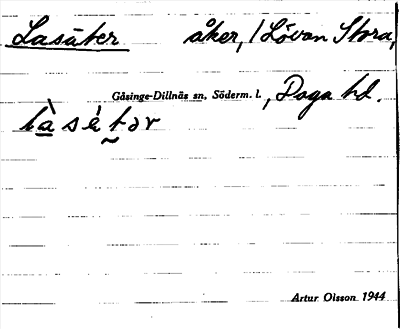 Lasäter åker, /Lövan Stora,
Gåsinge-Dillnäs sn, Söderm. l., Daga hd.
Artur Olsson 1944